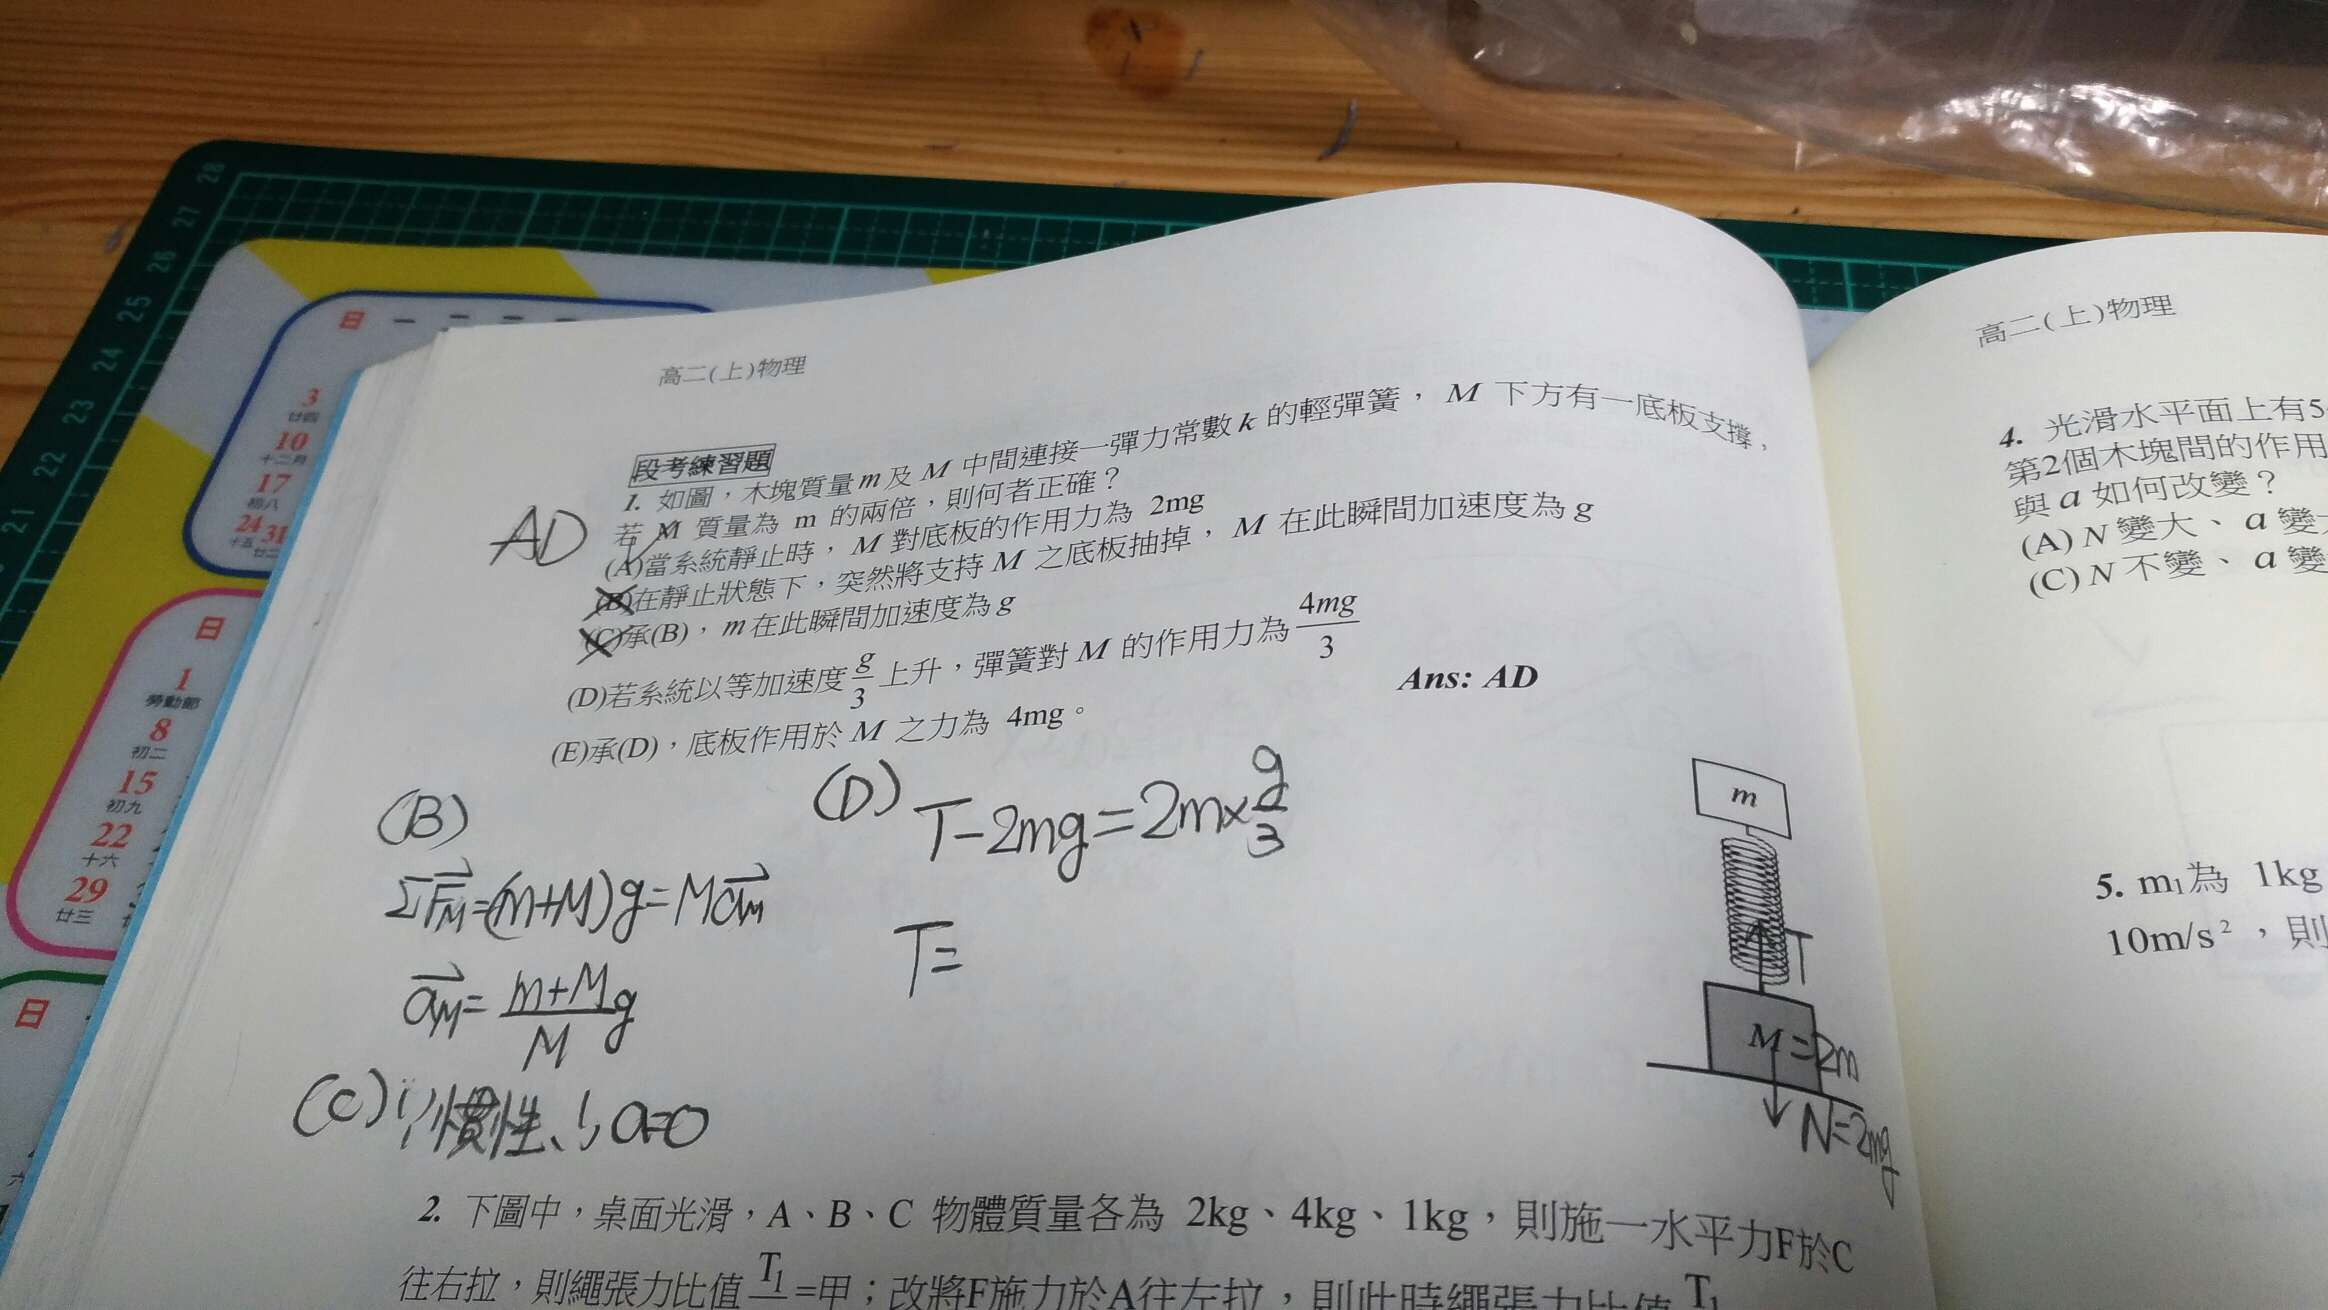 28
27
26
25
24
23
22
21
日 一 二 三 四
3
廿四
10
十二月
17
初八
24 31
十五 廿二
日
1
勞動節
8
初二
15
初九
22
十六
29
廿三
日
高二(上)物理
段考練習題
1. 如圖，木塊質量m及 M 中間連接一彈力常數k 的輕彈簧， M 下方有一底板支撐，
若 M 質量為 m 的兩倍，則何者正確？
(A)當系統靜止時， M 對底板的作用力為 2mg
(B)在靜止狀態下，突然將支持 M 之底板抽掉， M 在此瞬間加速度為 g
(C)承(B)， m在此瞬間加速度為g
(D)若系統以等加速度 g/3 上升，彈簧對 M 的作用力為 4mg/3
Ans: AD
(E)承(D)，底板作用於 M 之力為 4mg。
AD
(B)
ΣF⃗M=(m+M)g=Ma⃗M
a⃗M= (m+M)/M g
(C) 慣性 a=0
(D) T-2mg=2m×g/3
T=
m
T
M =2m
N=2mg
2. 下圖中，桌面光滑，A、B、C 物體質量各為 2kg、4kg、1kg，則施一水平力F於C
往右拉，則繩張力比值 T1 =甲；改將F施力於A往左拉，則此時繩張力比值 T1
高二(上)物理
4. 光滑水平面上有5
第2個木塊間的作用
與 a 如何改變？
(A) N 變大、 a 變
(C) N 不變、 a 變
5. m1為 1kg
10m/s²，則